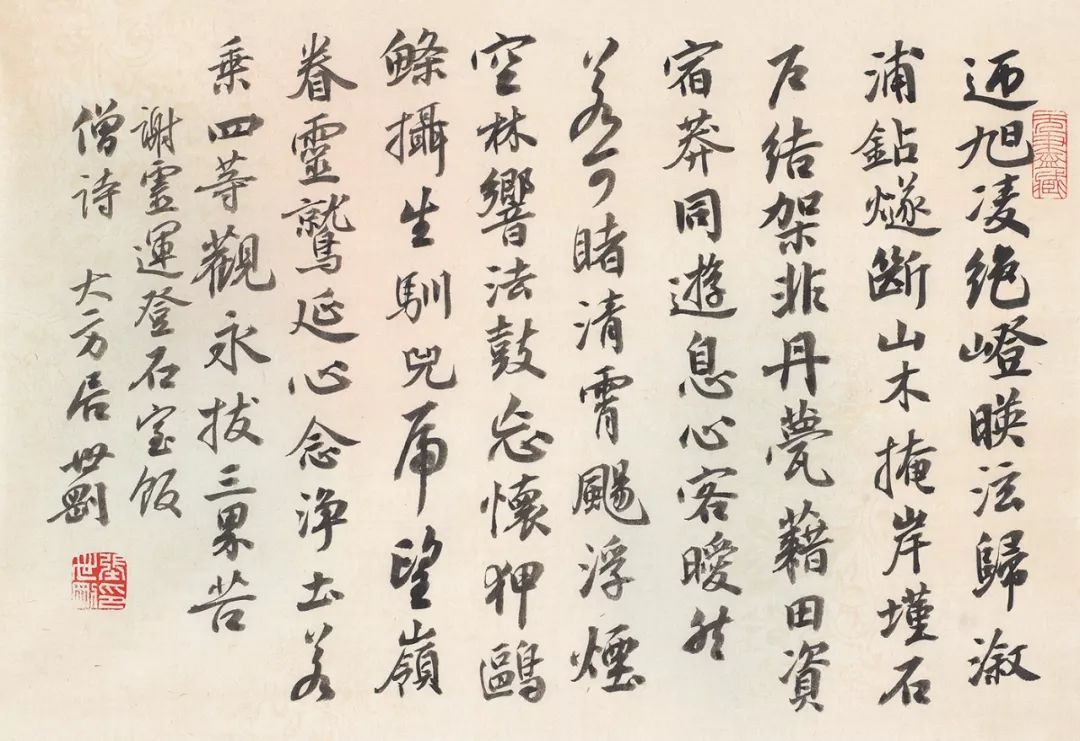 迎旭凌絶嶝暎泫歸漵
浦鉆燧斷山木掩岸墐石
戶結架非丹甍藉田資
宿莽同遊息心客曖然
若可睹清霄颺浮煙
空林響法鼓忘懷狎鷗
鰷攝生馴兕虎望嶺
眷靈鷲延心念淨土若
乘四等觀永拔三界苦
謝靈運登石室飯
僧詩 大方居世剛